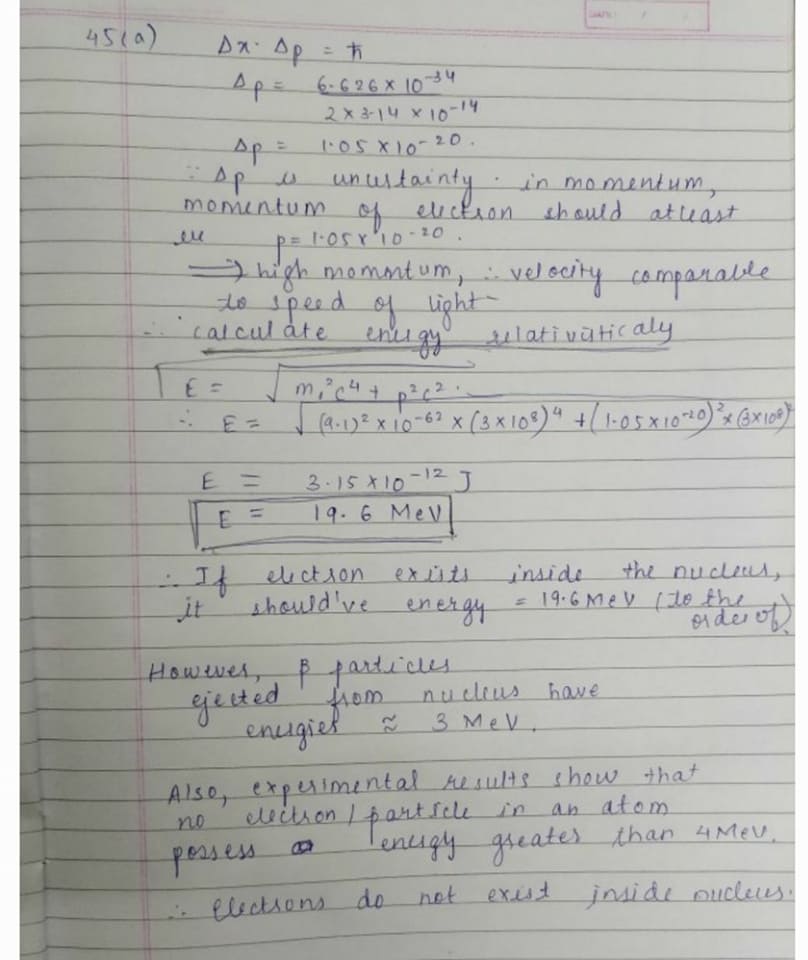 45(a) Δx. Δp = ħ
Δp = 6.626 × 10⁻³⁴
2 × 3.14 × 10⁻¹⁴
Δp = 1.05 × 10⁻²⁰.
∵ Δp is uncertainty. in momentum,
momentum of electron should atleast
p = 1.05 × 10⁻²⁰.
⟹ high momentum, ∴ velocity comparable
to speed of light
∴ calculate energy relativisticaly
E = √ m₀²c⁴ + p²c².
∴ E = √ (9.1)² × 10⁻⁶² × (3 × 10⁸)⁴ + (1.05 × 10⁻²⁰)² × (3×10⁸)²
E = 3.15 × 10⁻¹² J
E = 19.6 MeV
∴ If electron exists inside the nucleus,
it should've energy = 19.6 MeV (to the
order of)
However, β particles
ejected from nucleus have
energies ≈ 3 MeV.
Also, experimental results show that
no electron / particle in an atom
possess energy greater than 4 MeV.
∴ Electrons do not exist inside nucleus.